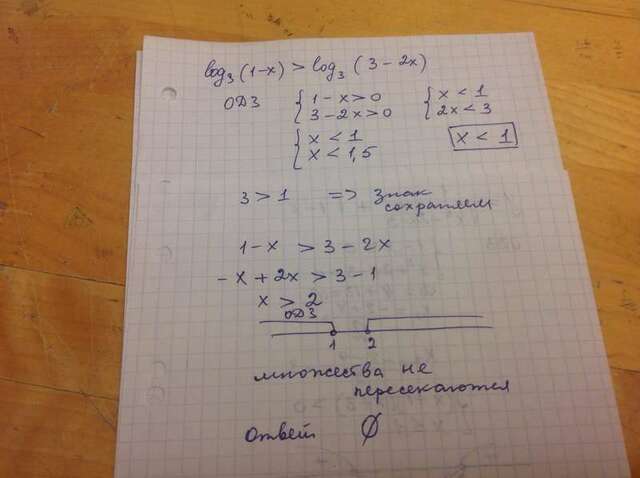 log₃(1-x) > log₃(3-2x)
ОДЗ { 1-x>0 { x < 1
3-2x>0 2x<3
{ x < 1 x < 1
x < 1,5
3 > 1 => Знак
сохраняем
1-x > 3-2x
-x + 2x > 3-1
x > 2
ОДЗ
1 2
множества не
пересекаются
Ответ Ø